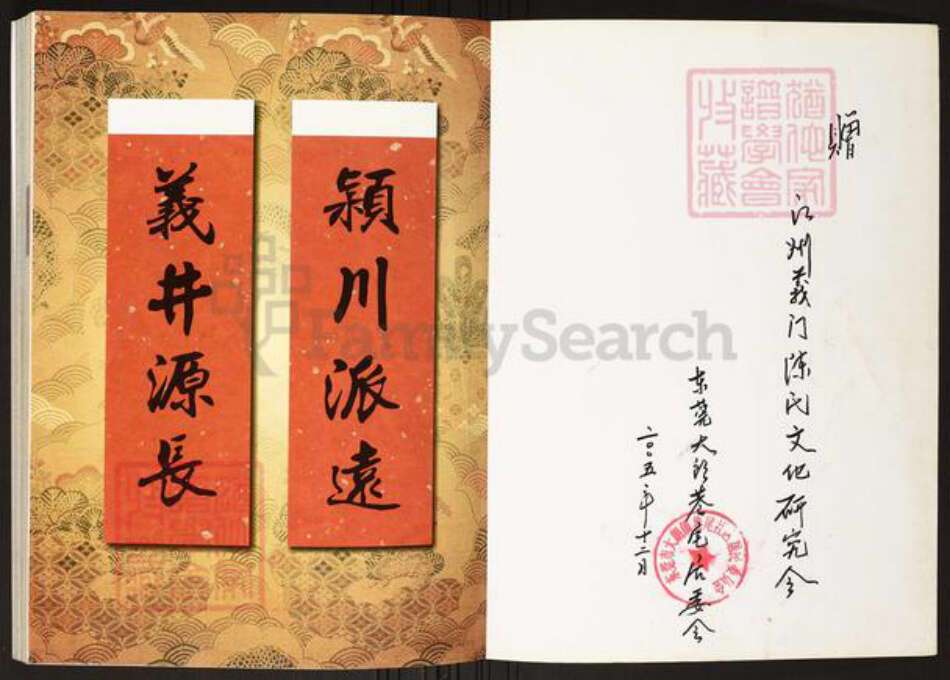 潁川派遠
義井源長
FamilySearch
贈
江州義门陈氏文化研究会
东莞大朗巷尾居委会
二00五年十二月
譜學會
收藏